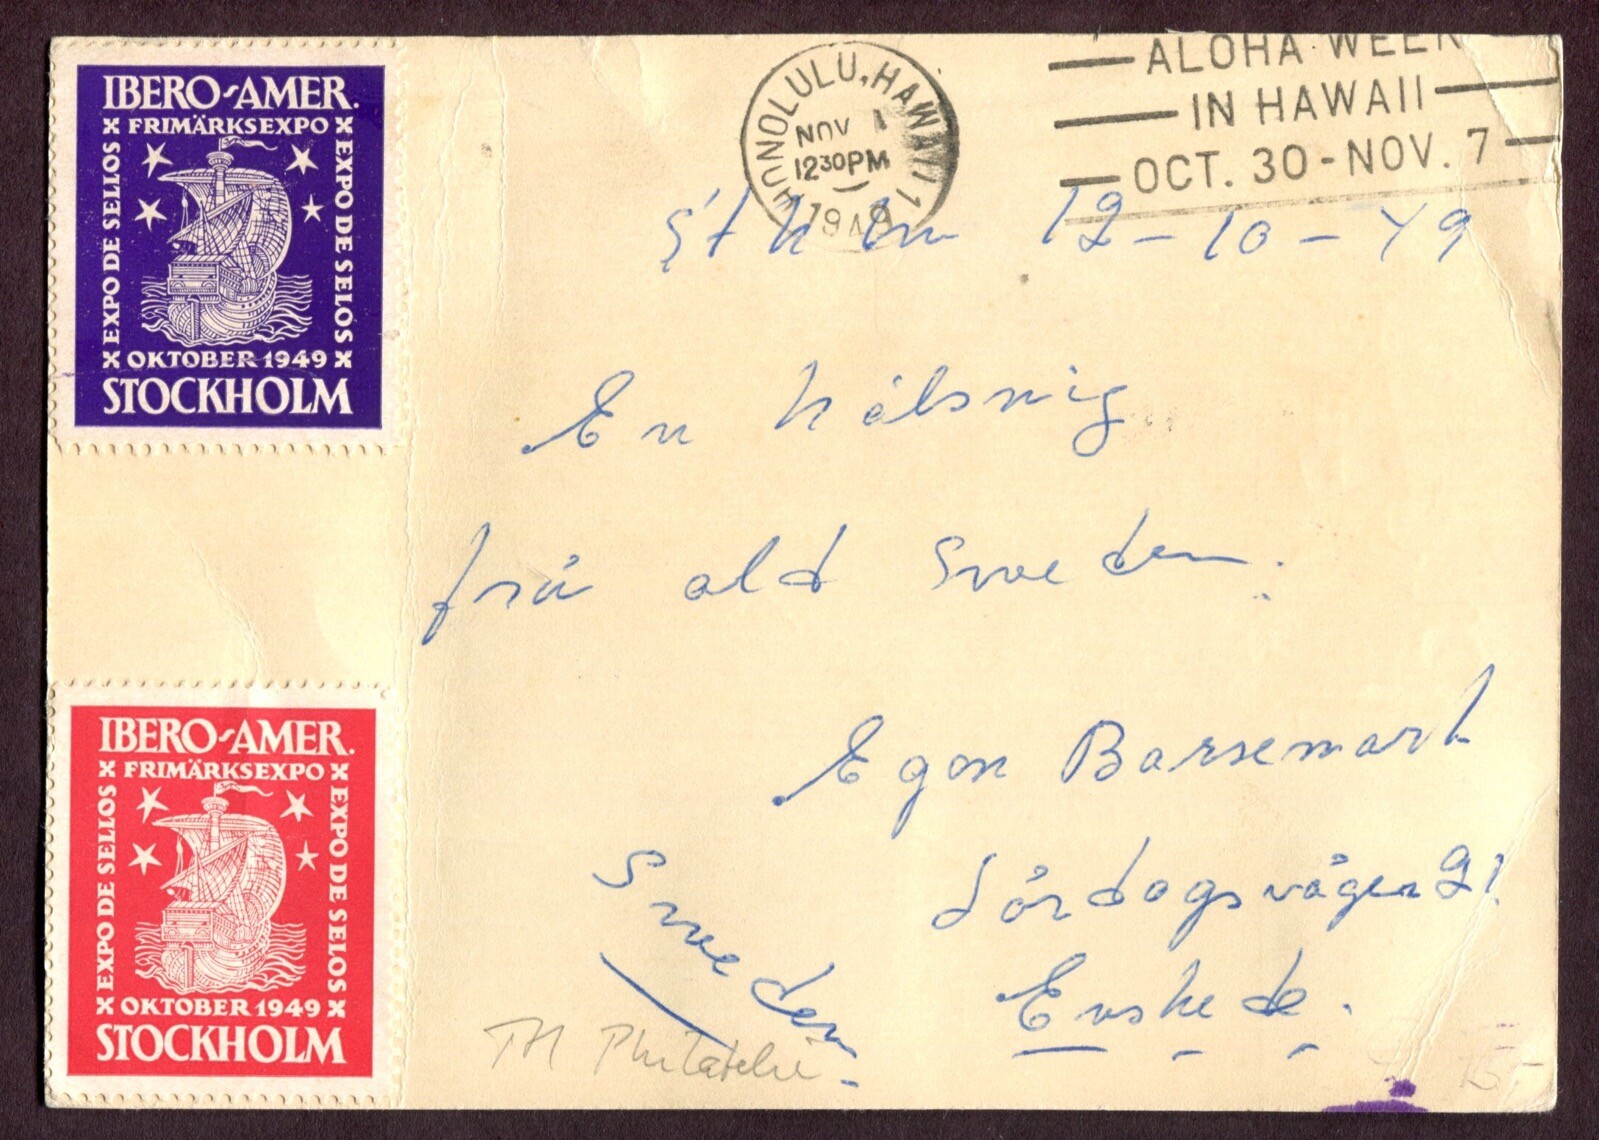 IBERO-AMER.
x FRIMÄRKSEXPO x
EXPO DE SELLOS
EXPO DE SELOS
x OKTOBER 1949 x
STOCKHOLM
HONOLULU, HAWAII 1
NOV 1
12 30 PM
1949
ALOHA WEEK
IN HAWAII
OCT. 30-NOV. 7
Sthlm 12-10-49
En hälsnig
frå old Sweden.
Egon Barsemark
Lördagsvägen 21
Sweden
Enskede.
TH Philatelie
15,-
IBERO-AMER.
x FRIMÄRKSEXPO x
EXPO DE SELLOS
EXPO DE SELOS
x OKTOBER 1949 x
STOCKHOLM